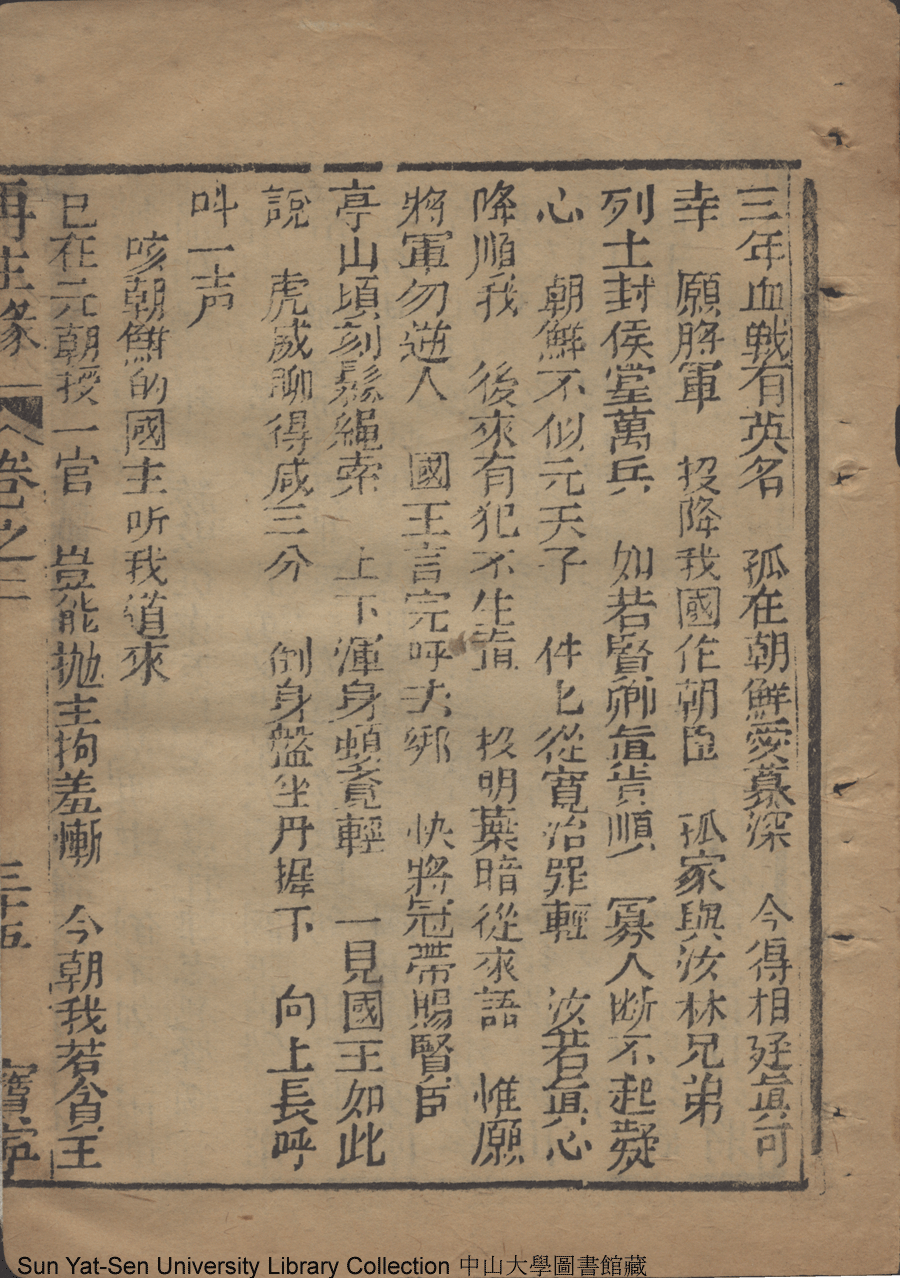 三年血戰有英名　孤在朝鮮愛慕深　今得相逢眞可
幸　願將軍　投降我國作朝臣　孤家與汝林兄弟
列土封侯堂萬兵　如若賢卿眞肯順　寡人断不起疑
心　朝鮮不似元天子　件匕從寬治罪輕　汝若眞心
降順我　後來有犯不生　投明葉暗從來語　惟願
將軍勿逆人　國王言完呼去綁　快將冠帶賜賢臣
亭山頃刻鬆繩索　上下渾身頓覔輕　一見國王如此
說　虎威聊得咸三分　倒身盤坐丹墀下　向上長呼
呌一声
咳朝鮮的國主听我道來
已在元朝授一官　豈能抛主拘羞慚　今朝我若貪王
再生緣　卷之二　三十五　寶寧
Sun Yat-Sen University Library Collection 中山大學圖書館藏